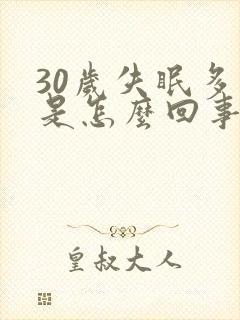 30歲失眠多
是怎麼回事
皇叔大人